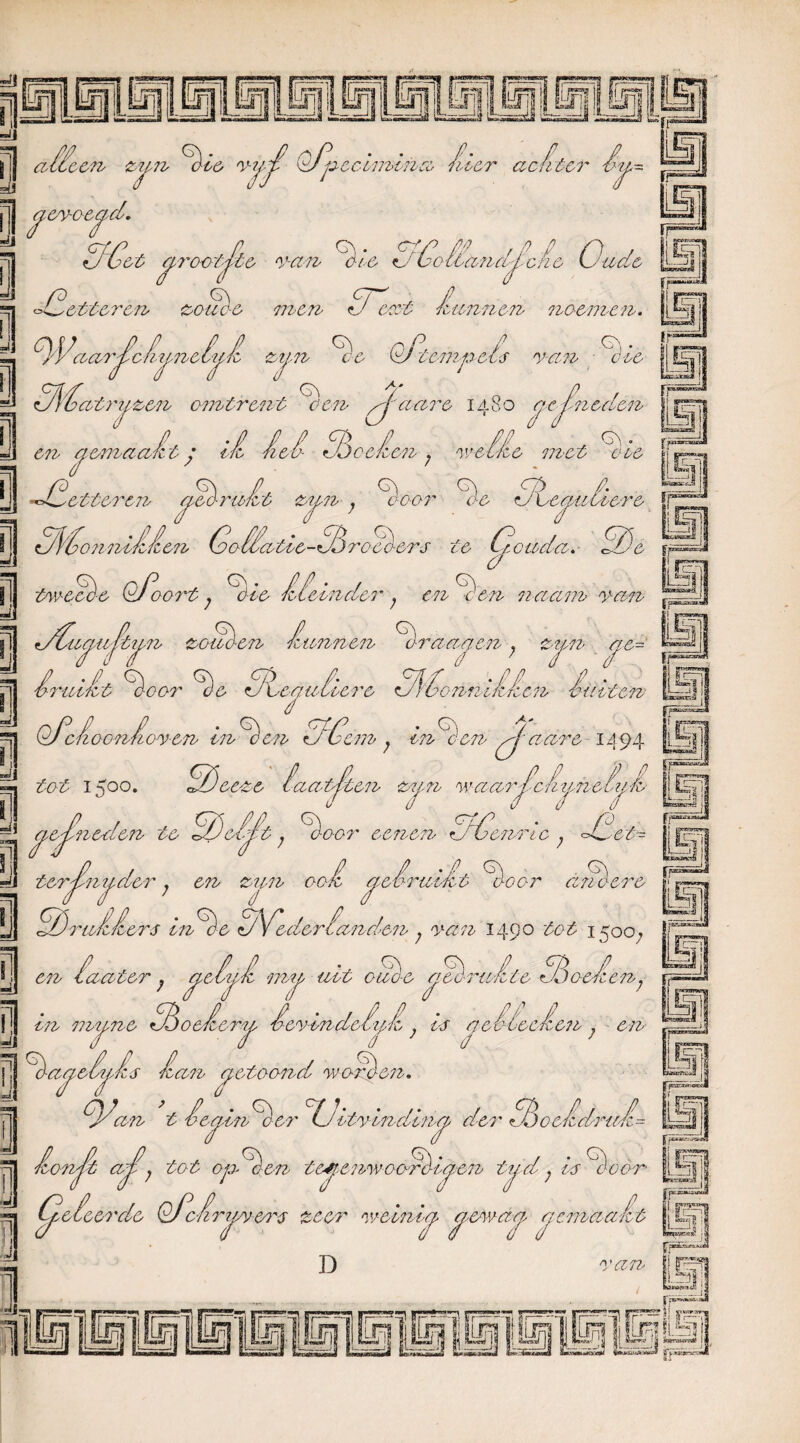 alleen zyn die vyf Specimina hier achter by=
gevoegd.
Het grootste van die Hollandsche Oude
Letteren zoude men Text kunnen noemen.
Waarschynelyk zyn de Stempels van die
Matryzen omtrent den Jaare 1480 gesneden
en gemaakt; ik heb Boeken, welke met die
Letteren gedrukt zyn, door de Reguliere
Monnikken Collatie-Broeders te Gouda. De
tweede Soort, die kleinder, en den naam van
Augustyn zouden kunnen draagen, zyn ge=
bruikt door de Reguliere Monnikken buiten
Schoonhoven in den Hem, in den Jaare 1494
tot 1500. Deeze laatsten zyn waarschynelyk
gesneden te Delft, door eenen Henric, Let=
tersnyder, en zyn ook gebruikt door andere
Drukkers in de Nederlanden, van 1490 tot 1500,
en laater, gelyk my uit oude gedrukte Boeken,
in myne Boekery bevindelyk, is gebleeken, en
dagelyks kan getoond worden.
Van 't begin der Uitvinding der Boekdruk=
konst af, tot op den tegenwoordigen tyd, is door
Geleerde Schryvers zeer weinig gewag gemaakt
D van